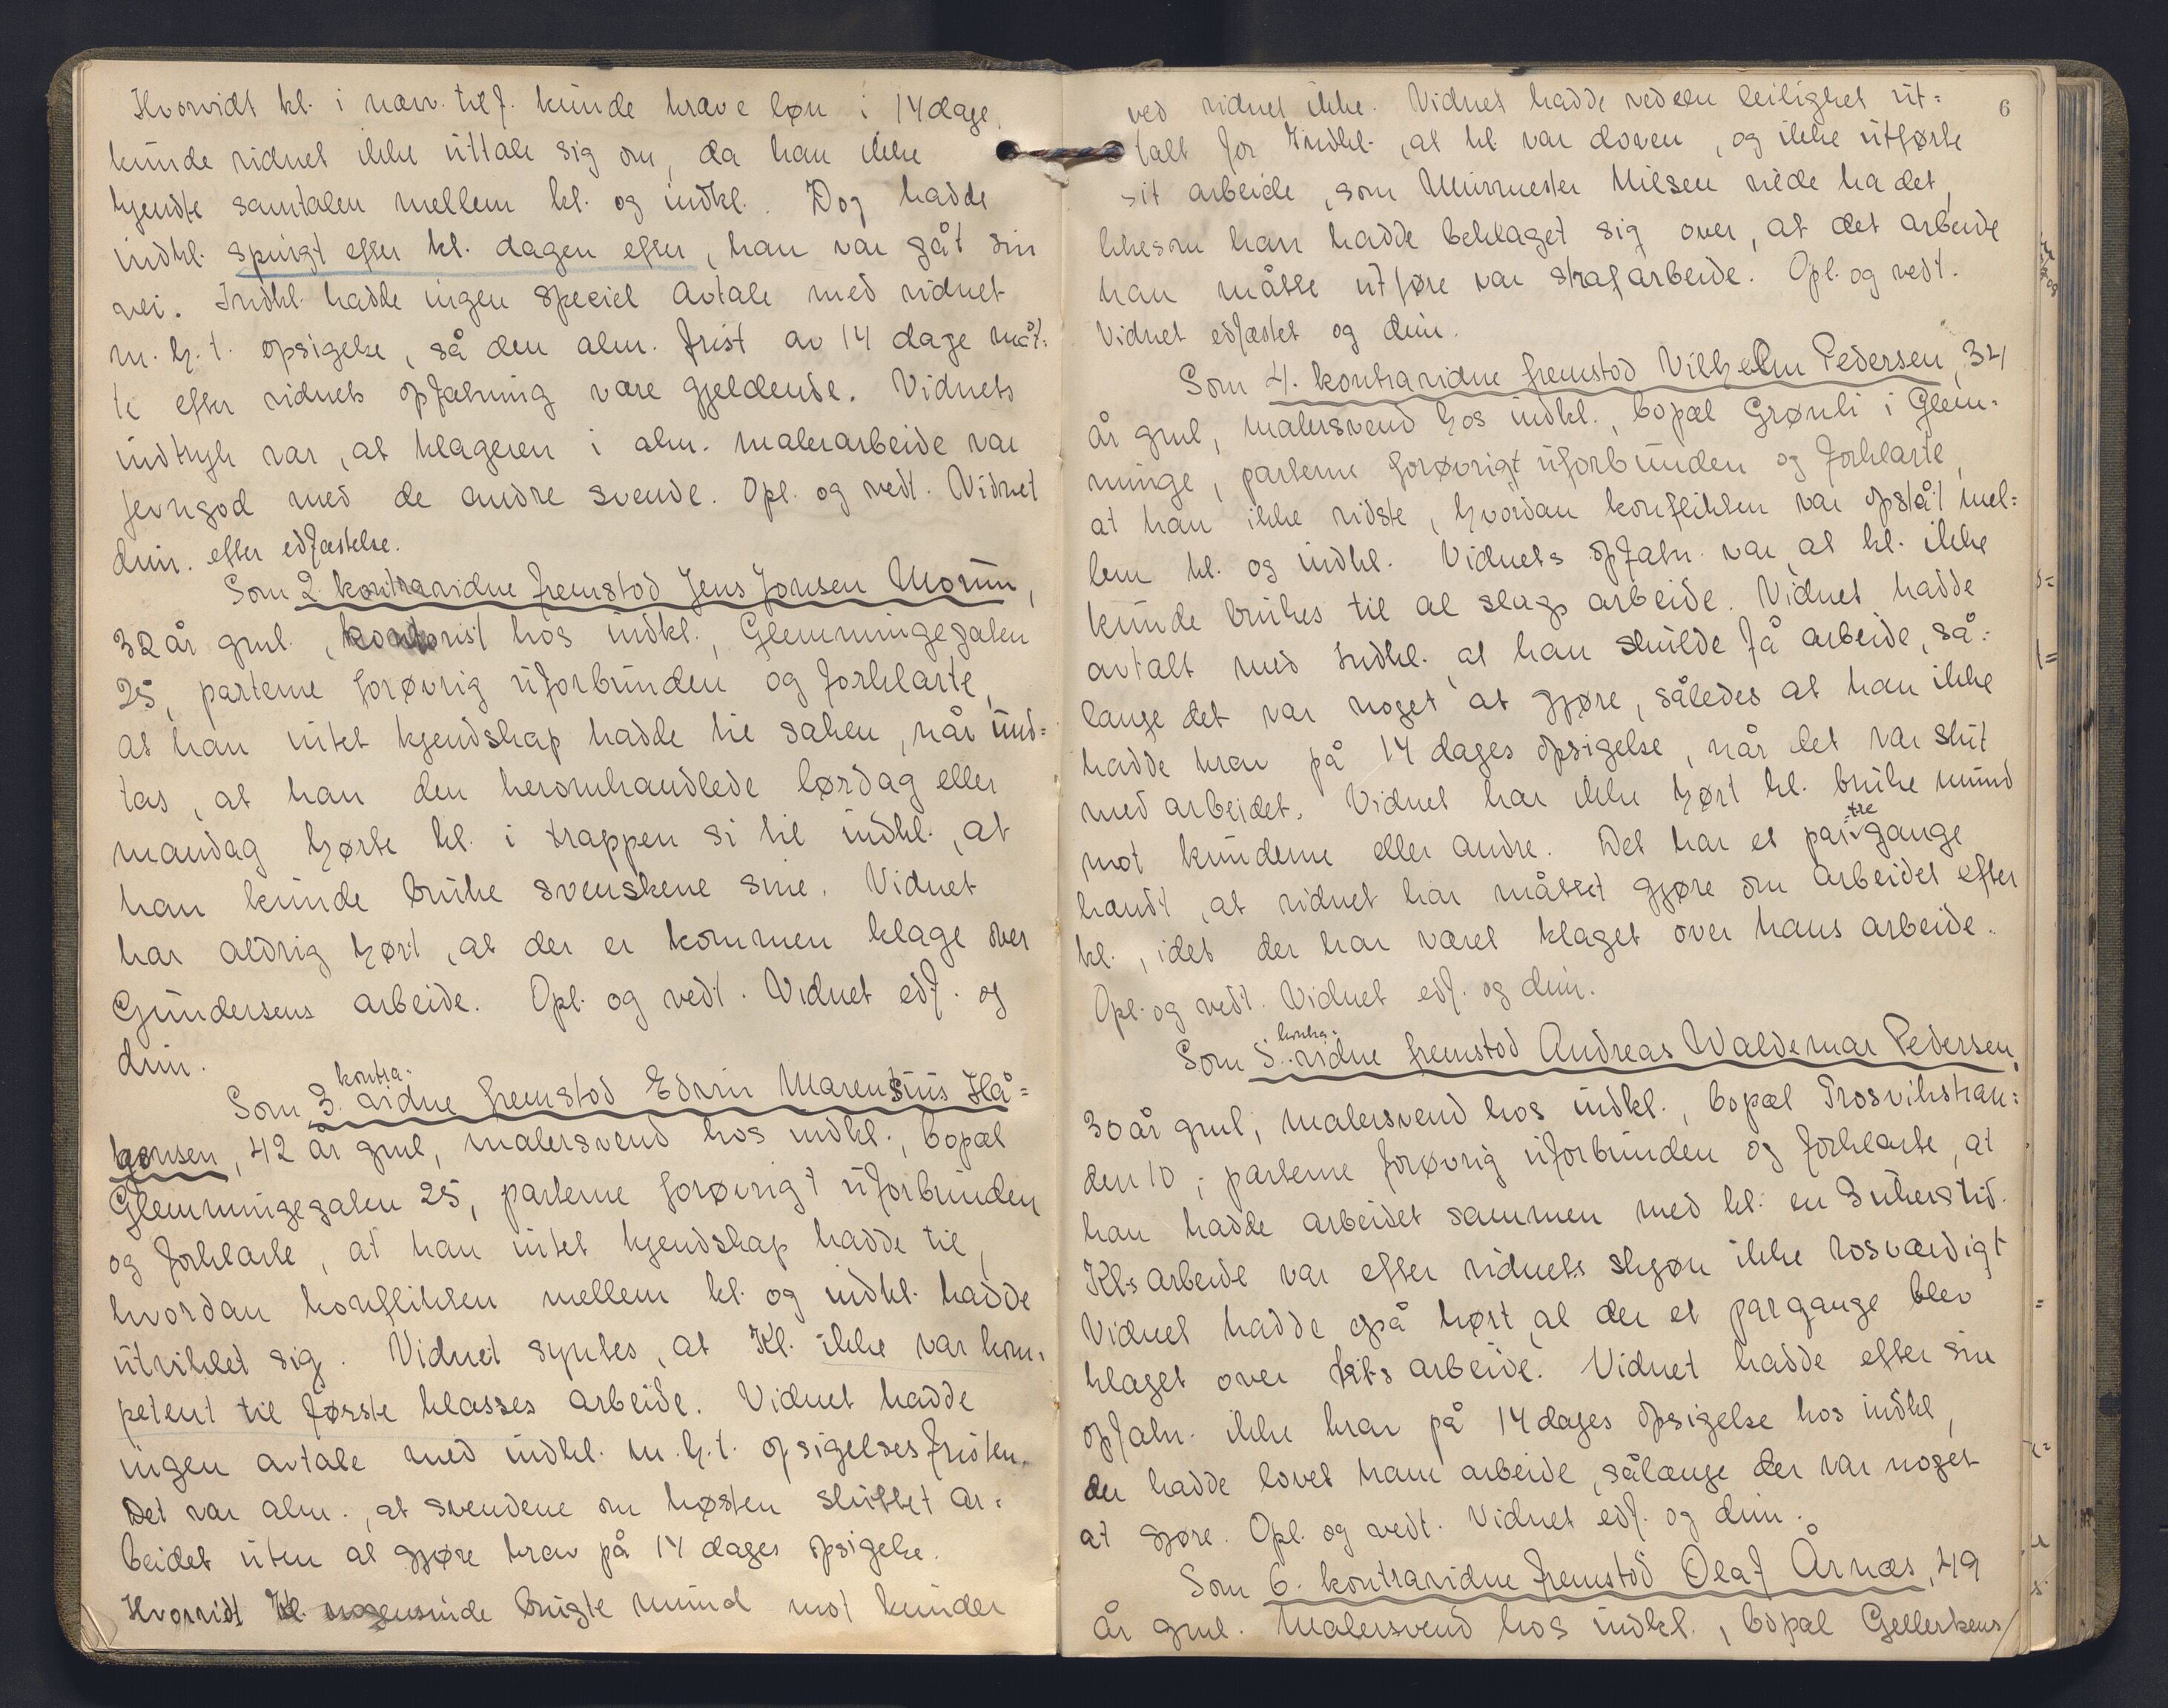 Hvorvidt kl. i nærv. tilf. kunde kræve løn i 14 dage,
kunde vidnet ikke uttale sig om, da han ikke
kjendte samtalen mellem kl. og indkl. Dog hadde
indkl. spurgt efter kl. dagen efter, han var gåt sin
vei. Indkl. hadde ingen speciel avtale med vidnet
m. h. t. opsigelse, så den alm. frist av 14 dage måt=
te efter vidnets opfatning være gjeldende. Vidnets
indtryk var, at klageren i alm. malerarbeide var
jevngod med de andre svende. Opl. og vedt. Vidnet
dim. efter edfæstelse.
Som 2. kontravidne fremstod Jens Jonsen Morum,
32 år gml., kontorist hos indkl., Glemmingegaten
25, parterne forøvrig uforbunden og forklarte,
at han intet kjendskap hadde til saken, når und=
tas, at han den heromhandlede lørdag eller
mandag hørte kl. i trappen si til indkl., at
han kunde bruke svenskene sine. Vidnet
har aldrig hørt, at der er kommen klage over
Gundersens arbeide. Opl. og vedt. Vidnet edf. og
dim.
Som 3. kontra-vidne fremstod Edvin Marensius Hå=
konsen, 42 år gml, malersvend hos indkl., bopæl
Glemmingegaten 25, parterne forøvrigt uforbunden
og forklarte, at han intet kjendskap hadde til,
hvordan konflikten mellem kl. og indkl. hadde
utviklet sig. Vidnet syntes, at Kl. ikke var kom=
petent til første klasses arbeide. Vidnet hadde
ingen avtale med indkl. m. h. t. opsigelsesfristen.
Det var alm., at svendene om høsten sluttet ar=
beidet uten at gjøre krav på 14 dages opsigelse.
Hvorvidt Kl. nogensinde brugte mund mot kunder
6
ved vidnet ikke. Vidnet hadde ved en leilighet ut=
talt for Indkl., at kl. var doven, og ikke utførte
sit arbeide, som Murmester Nilsen vilde ha det,
likesom han hadde beklaget sig over, at det arbeide
han måtte utføre var strafarbeide. Opl. og vedt.
Vidnet edfæstet og dim.
Som 4. kontravidne fremstod Vilhelm Pedersen, 34
år gml, malersvend hos indkl., bopæl Grønli i Glem=
minge, parterne forøvrigt uforbunden og forklarte,
at han ikke vidste, hvordan konflikten var opståt mel=
lem kl. og indkl. Vidnets opfatn. var, at kl. ikke
kunde brukes til al slags arbeide. Vidnet hadde
avtalt med Indkl. at han skulde få arbeide, så=
lange det var noget at gjøre, således at han ikke
hadde krav på 14 dages opsigelse, når det var slut
med arbeidet. Vidnet har ikke hørt kl. bruke mund
mot kunderne eller andre. Det har et par tre gange
hændt, at vidnet har måttet gjøre om arbeidet efter
kl., idet der har været klaget over hans arbeide.
Opl. og vedt. Vidnet edf. og dim.
Som 5. kontra-vidne fremstod Andreas Waldemar Pedersen,
30 år gml, malersvend hos indkl., bopæl Trosvikstran=
den 10, parterne forøvrig uforbunden og forklarte, at
han hadde arbeidet sammen med kl. en 3 ukers tid.
Kl.s arbeide var efter vidnets skjøn ikke rosværdigt
Vidnet hadde også hørt, at der et par gange blev
klaget over kl.s arbeide. Vidnet hadde efter sin
opfatn. ikke krav på 14 dages opsigelse hos indkl,
der hadde lovet ham arbeide, sålænge der var noget
at gjøre. Opl. og vedt. Vidnet edf. og dim.
Som 6. kontravidne fremstod Olaf Årnæs, 49
år gml. Malersvend hos indkl., bopæl Gellerkens